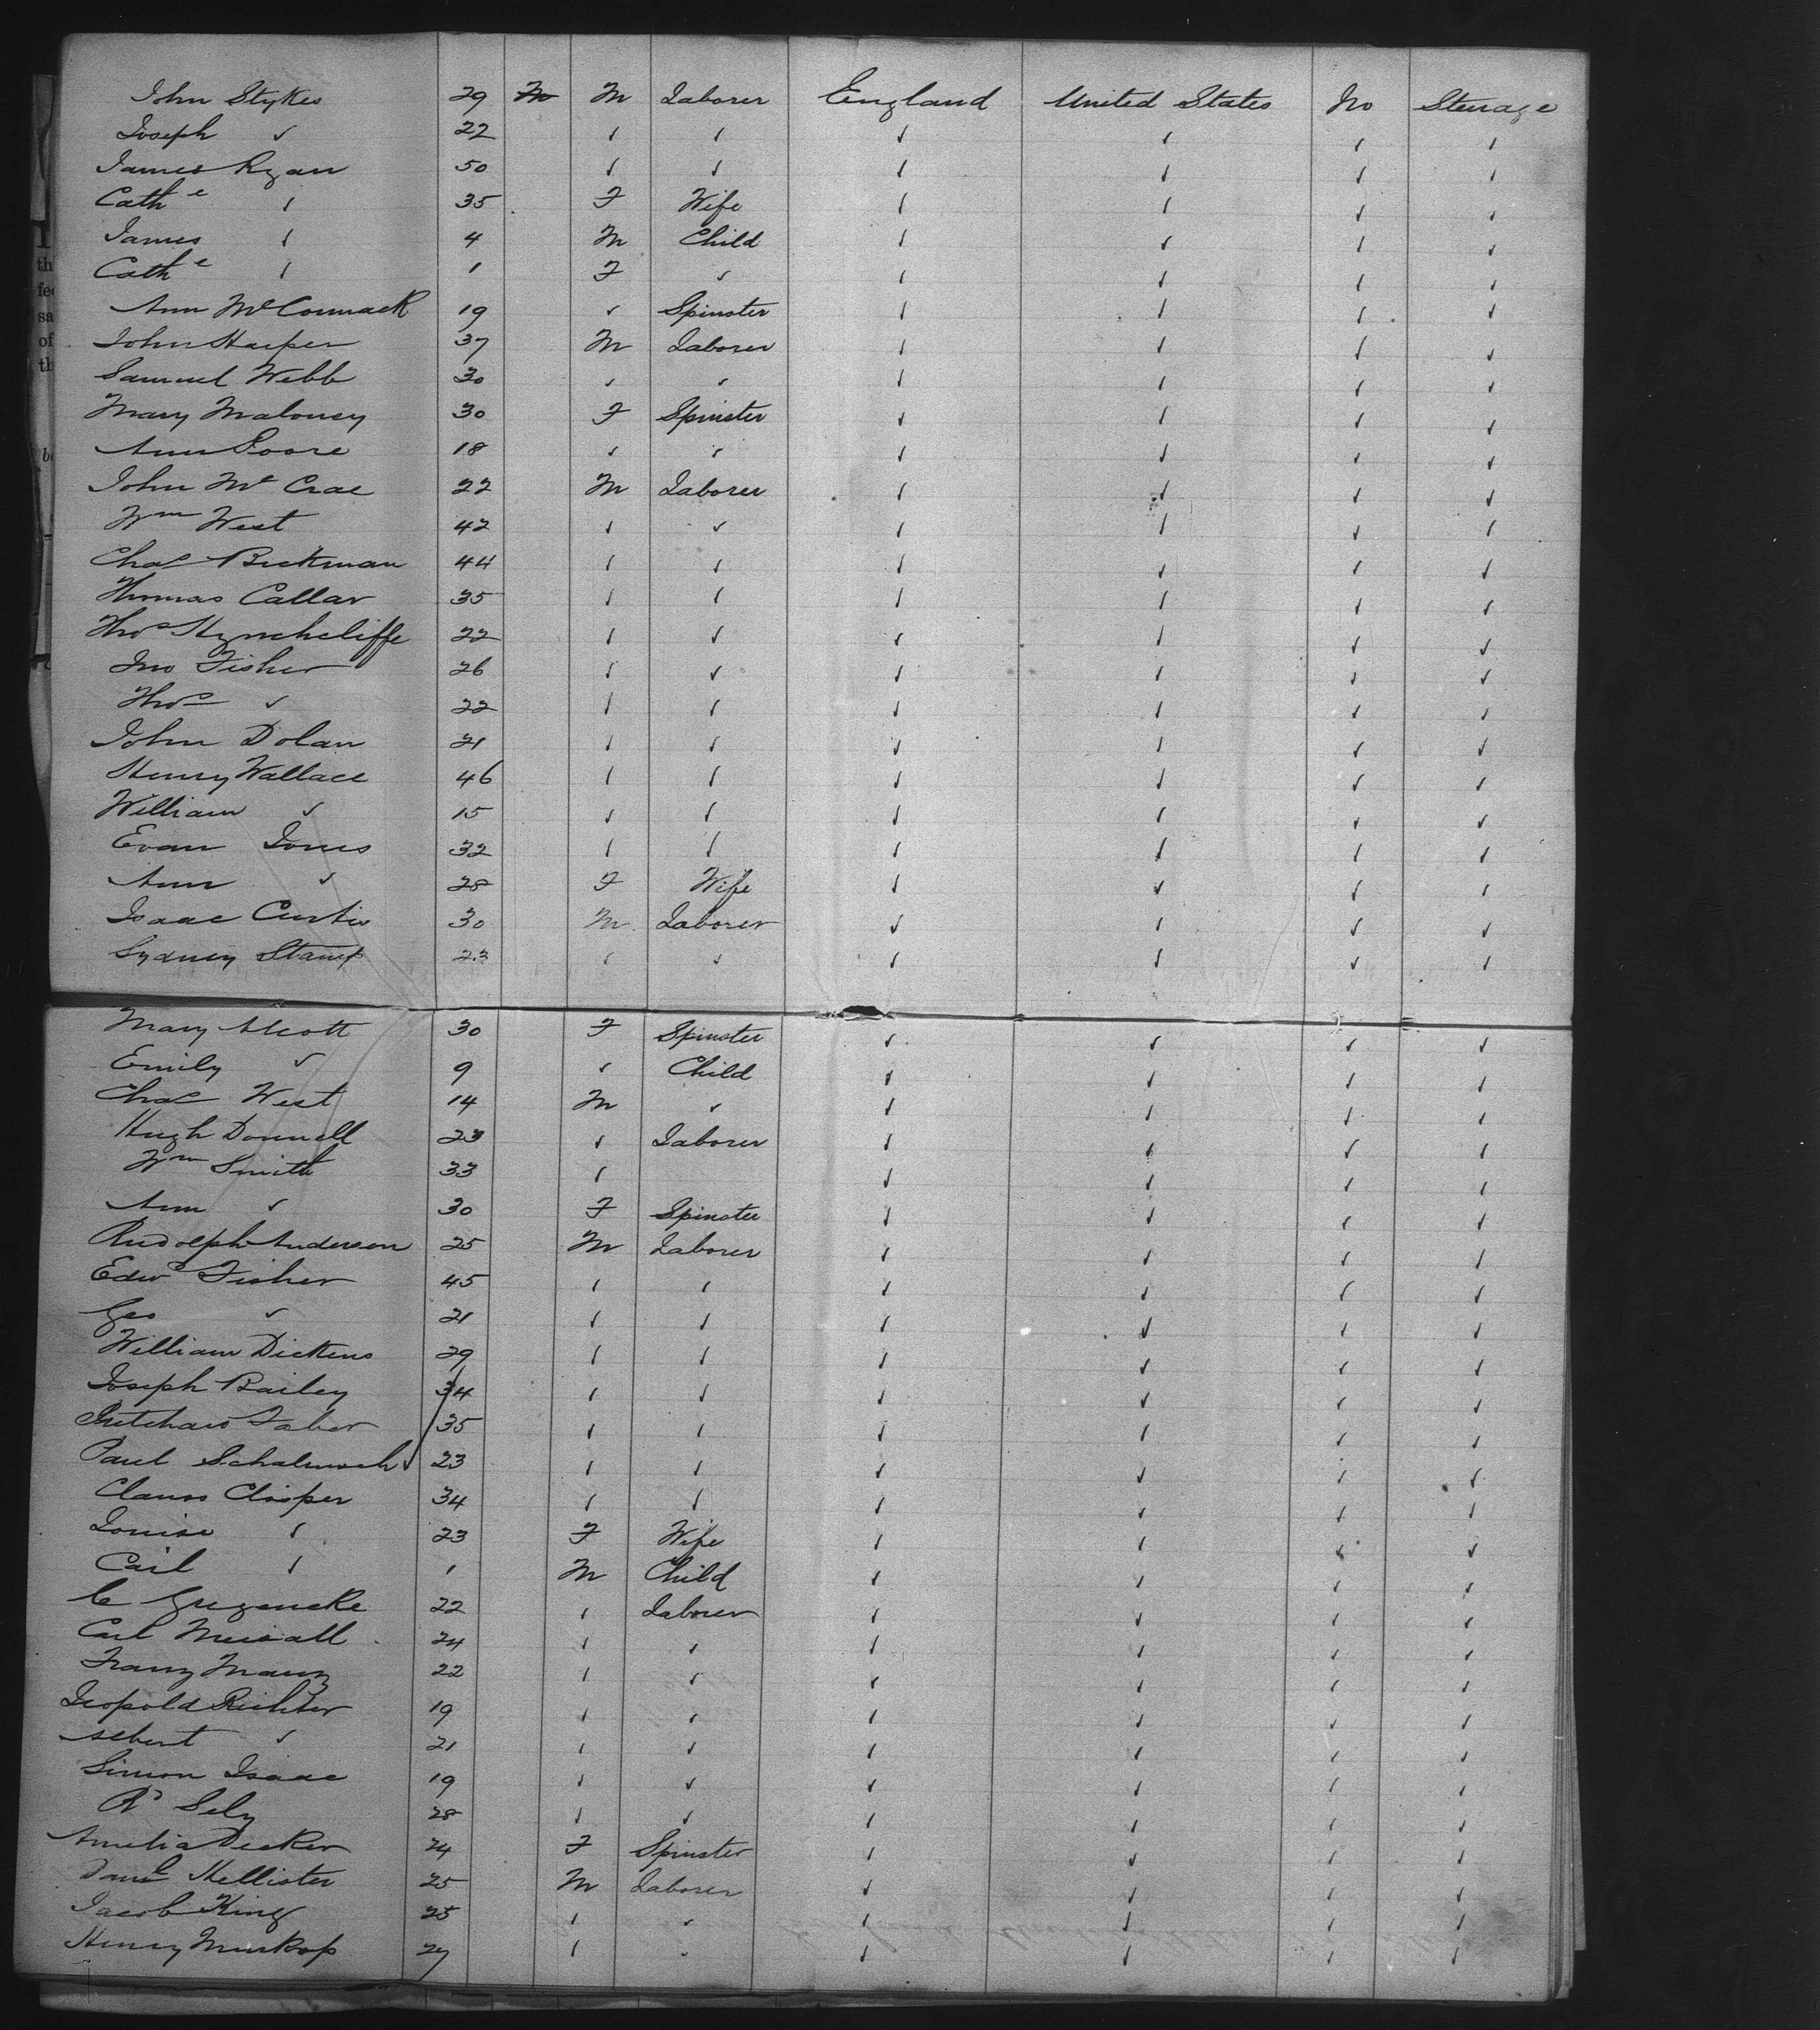 John Stykes 29 M Laborer England United States No Steerage
Joseph ✓ 22 ✓ ✓ ✓ ✓ ✓ ✓
James Ryan 50 ✓ ✓ ✓ ✓ ✓ ✓
Cathe ✓ 35 F Wife ✓ ✓ ✓ ✓
James ✓ 4 M Child ✓ ✓ ✓ ✓
Cathe ✓ 1 F ✓ ✓ ✓ ✓ ✓
Ann McCormack 19 ✓ Spinster ✓ ✓ ✓ ✓
John Harper 37 M Laborer ✓ ✓ ✓ ✓
Samuel Webb 30 ✓ ✓ ✓ ✓ ✓ ✓
Mary Maloney 30 F Spinster ✓ ✓ ✓ ✓
Ann Poore 18 ✓ ✓ ✓ ✓ ✓ ✓
John McCrae 22 M Laborer ✓ ✓ ✓ ✓
Wm West 42 ✓ ✓ ✓ ✓ ✓ ✓
Chas Bickman 44 ✓ ✓ ✓ ✓ ✓ ✓
Thomas Callar 35 ✓ ✓ ✓ ✓ ✓ ✓
Thos Hynchcliffe 22 ✓ ✓ ✓ ✓ ✓ ✓
Jno Fisher 26 ✓ ✓ ✓ ✓ ✓ ✓
Thos ✓ 22 ✓ ✓ ✓ ✓ ✓ ✓
John Dolan 21 ✓ ✓ ✓ ✓ ✓ ✓
Henry Wallace 46 ✓ ✓ ✓ ✓ ✓ ✓
William ✓ 15 ✓ ✓ ✓ ✓ ✓ ✓
Evan Jones 32 ✓ ✓ ✓ ✓ ✓ ✓
Ann ✓ 28 F Wife ✓ ✓ ✓ ✓
Isaac Curtis 30 M Laborer ✓ ✓ ✓ ✓
Sydney Stamp 23 ✓ ✓ ✓ ✓ ✓ ✓
Mary Alcott 30 F Spinster ✓ ✓ ✓ ✓
Emily ✓ 9 ✓ Child ✓ ✓ ✓ ✓
Chas West 14 M ✓ ✓ ✓ ✓ ✓
Hugh Donnell 23 ✓ Laborer ✓ ✓ ✓ ✓
Wm Smith 33 ✓ ✓ ✓ ✓ ✓
Ann ✓ 30 F Spinster ✓ ✓ ✓ ✓
Rudolph Anderson 25 M Laborer ✓ ✓ ✓ ✓
Edwd Fisher 45 ✓ ✓ ✓ ✓ ✓ ✓
Geo ✓ 21 ✓ ✓ ✓ ✓ ✓ ✓
William Dickens 29 ✓ ✓ ✓ ✓ ✓ ✓
Joseph Bailey 34 ✓ ✓ ✓ ✓ ✓ ✓
Faber 35 ✓ ✓ ✓ ✓ ✓ ✓
Paul 23 ✓ ✓ ✓ ✓ ✓ ✓
Clauss Clisper 34 ✓ ✓ ✓ ✓ ✓ ✓
Louise ✓ 23 F Wife ✓ ✓ ✓ ✓
Carl ✓ 1 M Child ✓ ✓ ✓ ✓
C 22 ✓ Laborer ✓ ✓ ✓ ✓
Carl 24 ✓ ✓ ✓ ✓ ✓ ✓
Franz Franz 22 ✓ ✓ ✓ ✓ ✓ ✓
Leopold Richter 19 ✓ ✓ ✓ ✓ ✓ ✓
Albert ✓ 21 ✓ ✓ ✓ ✓ ✓ ✓
Simon Isaac 19 ✓ ✓ ✓ ✓ ✓ ✓
Rd Sely 28 ✓ ✓ ✓ ✓ ✓ ✓
Amelia Decker 24 F Spinster ✓ ✓ ✓ ✓
Danl Hellister 25 M Laborer ✓ ✓ ✓ ✓
Jacob King 25 ✓ ✓ ✓ ✓ ✓ ✓
Henry 27 ✓ ✓ ✓ ✓ ✓ ✓